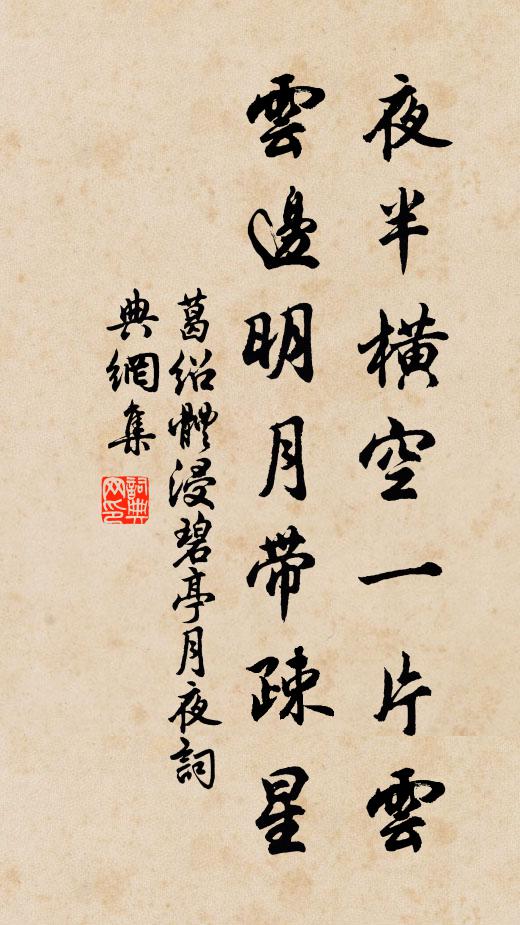 夜半橫空一片雲
雲邊明月帶疎星
葛绍體浸碧亭月夜詞
典網集
詞典
网印